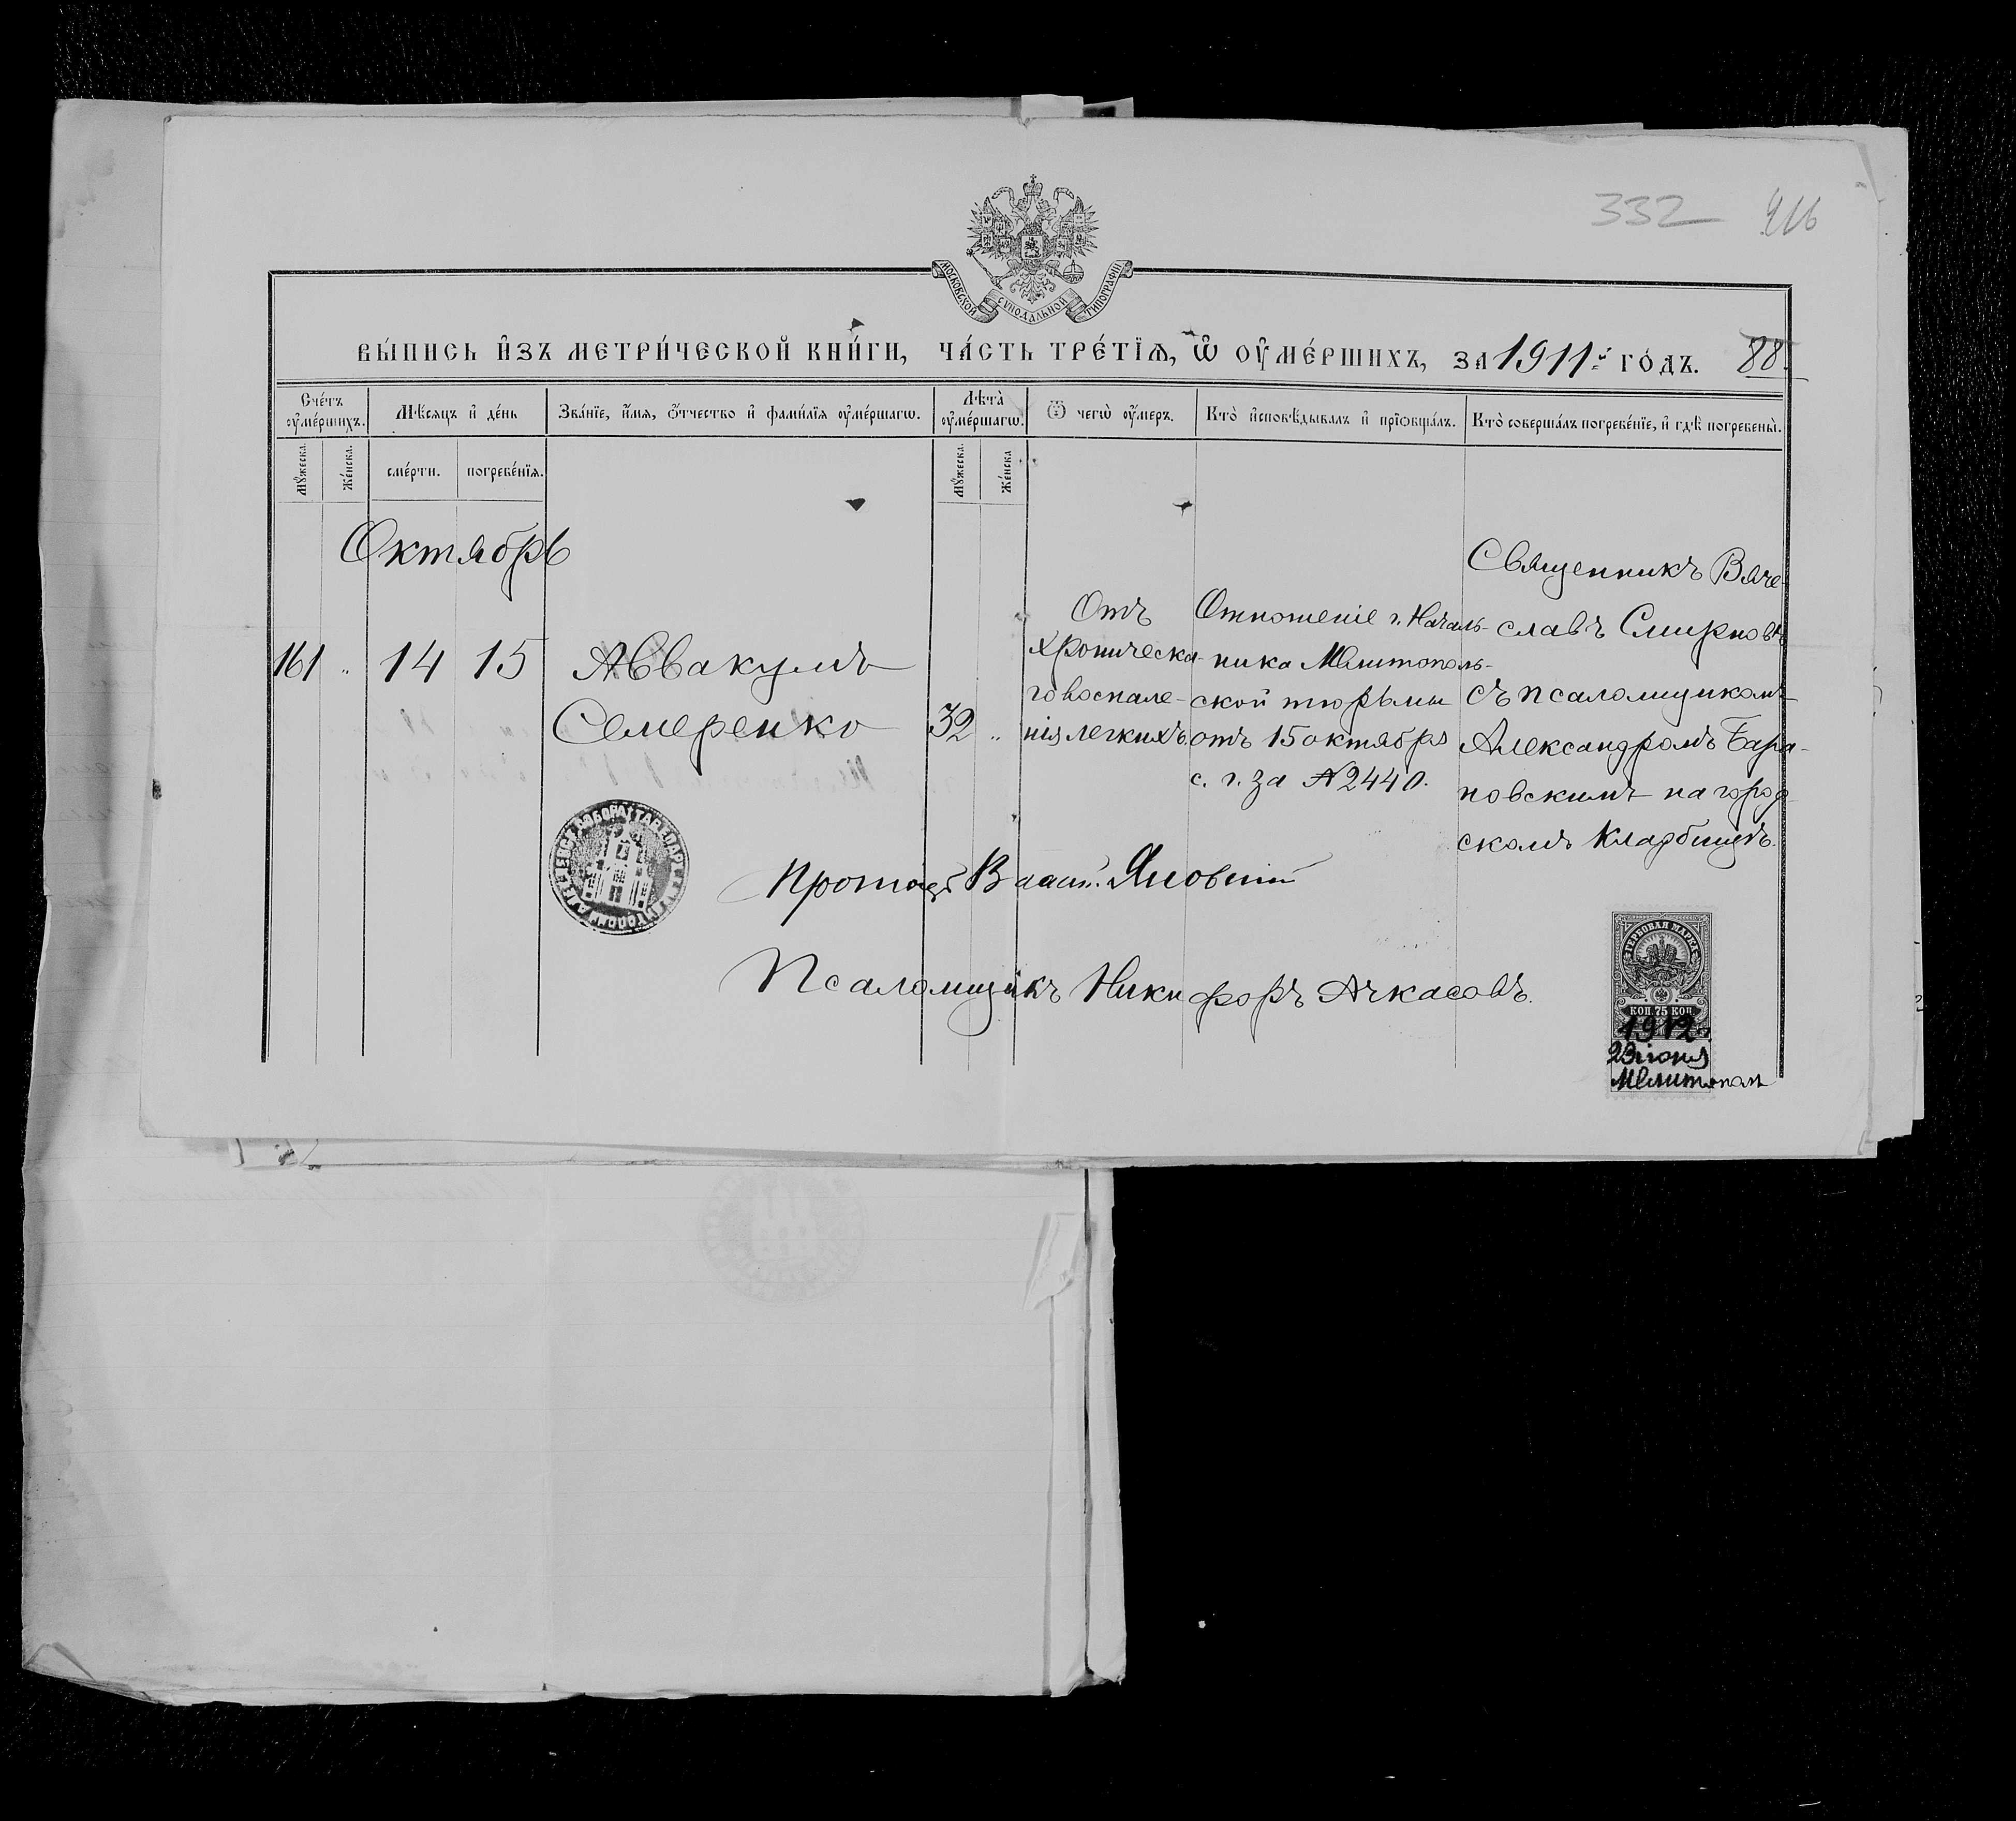 332 416
МОСКОВСКОЙ СѴНОДАЛЬНОЙ ТИПОГРАФІИ
ВЫ́ПИСЬ И҆ЗЪ МЕТРИ́ЧЕСКОЙ КНИ́ГИ, ЧА́СТЬ ТРЕ́ТІѦ, Ѡ҆ ОУ҆МЕ́РШИХЪ, ЗА 1911й ГО́ДЪ. 88.
Сче́тъ оу҆ме́ршихъ.
Мѣ́сяцъ и҆ де́нь
Зва́нїе, и҆́мя, ѻ҆́тчество и҆ фами́лїя оу҆ме́ршагѡ.
Лѣ́та̀ оу҆ме́ршагѡ.
Ѿ чегѡ̀ оу҆́меръ.
Кто̀ и҆сповѣ́дывалъ и҆ прїѡбща́лъ.
Кто̀ соверша́лъ погребе́нїе, и҆ гдѣ̀ погребены̀.
Мꙋ́жеска.
Же́нска.
сме́рти.
погребе́нїѧ.
Мꙋ́жеска
Же́нска
Октябрь
161 " 14 15
Аввакумъ
Семеренко
32 "
Отъ
хроническа-
го воспале-
нія легкихъ.
Отношеніе г. Началь-
ника Мелитополь-
ской тюрьмы
отъ 15 октября
с. г. за №2440.
Священникъ Вяче-
славъ Смирновъ
съ псаломщикомъ
Александромъ Бара-
новскимъ на город-
скомъ кладбищѣ.
Яновскій
Псаломщикъ Никифоръ Ачкасовъ.
ГЕРБОВАЯ МАРКА
КОП. 75 КОП.
1912 г.
23 іюня
Мелитополь